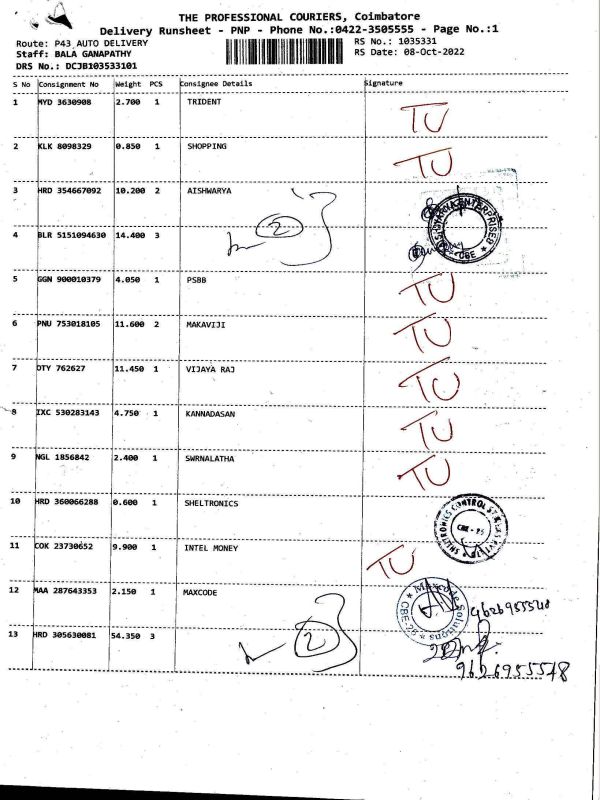 THE PROFESSIONAL COURIERS, Coimbatore
Delivery Runsheet - PNP - Phone No.:0422-3505555 - Page No.:1
Route: P43 AUTO DELIVERY RS No.: 1035331
Staff: BALA GANAPATHY RS Date: 08-Oct-2022
DRS No.: DCJB103533101
S No Consignment No Weight PCS Consignee Details Signature
1 MYD 3630908 2.700 1 TRIDENT TU
2 KLK 8098329 0.850 1 SHOPPING TU
3 HRD 354667092 10.200 2 AISHWARYA
2
4 BLR 5151094630 14.400 3
ENTERPRISES CBE
5 GGN 900010379 4.050 1 PSBB TU
6 PNU 753018105 11.600 2 MAKAVIJI TU
7 OTY 762627 11.450 1 VIJAYA RAJ TU
8 IXC 530283143 4.750 1 KANNADASAN TU
9 NGL 1856842 2.400 1 SWRNALATHA TU
10 HRD 360066288 0.600 1 SHELTRONICS
CONTROL CBE - 25
11 COK 23730652 9.900 1 INTEL MONEY TU
12 MAA 287643353 2.150 1 MAXCODE
Maxcode Solutions CBE-28
9626955548
13 HRD 305630081 54.350 3
2
9626955548